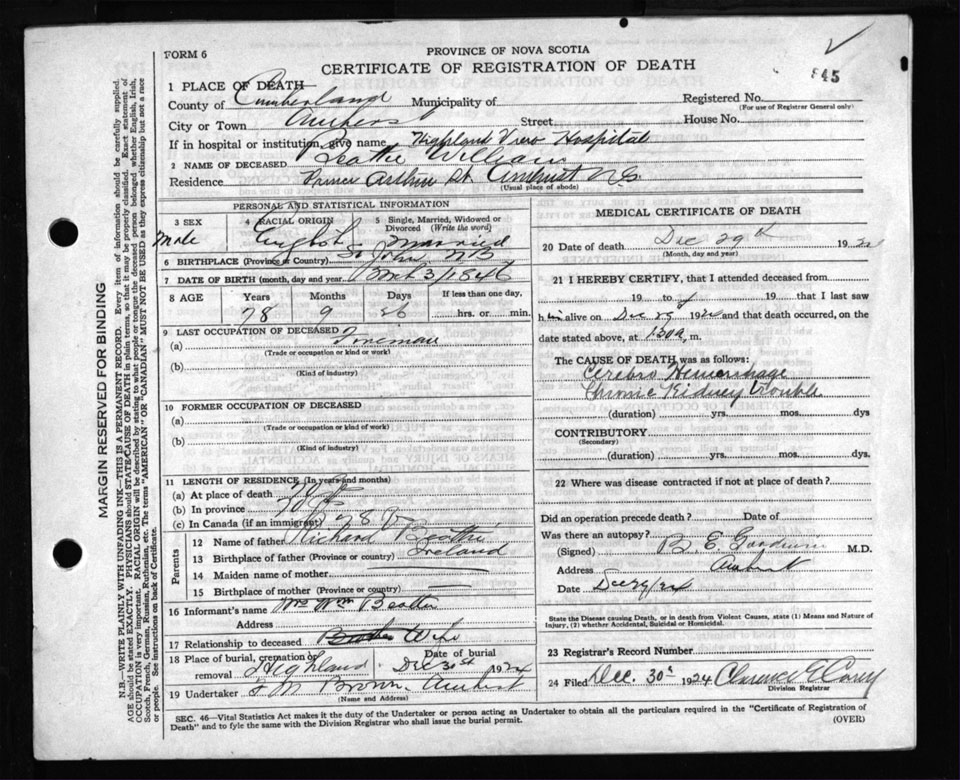 FORM 6
PROVINCE OF NOVA SCOTIA
CERTIFICATE OF REGISTRATION OF DEATH
45
1 PLACE OF DEATH—
County of Cumberland Municipality of
Registered No.
(For use of Registrar General only)
City or Town Amherst Street House No.
If in hospital or institution, give name Highland View Hospital
2 NAME OF DECEASED Beattie William
Residence Arthur St Amherst N.S.
(Usual place of abode)
PERSONAL AND STATISTICAL INFORMATION
3 SEX 4 RACIAL ORIGIN 5 Single, Married, Widowed or Divorced (Write the word)
Male English Married
6 BIRTHPLACE (Province or Country) St John NB
7 DATE OF BIRTH (month, day and year) 3/1846
8 AGE Years Months Days If less than one day,
78 9 26 hrs. or min.
9 LAST OCCUPATION OF DECEASED
(a) Foreman
(Trade or occupation or kind of work)
(b)
(Kind of industry)
10 FORMER OCCUPATION OF DECEASED
(a)
(Trade or occupation or kind of work)
(b)
(Kind of industry)
11 LENGTH OF RESIDENCE (In years and months)
(a) At place of death
(b) In province
(c) In Canada (if an immigrant) 78
Parents
12 Name of father Richard Beattie
13 Birthplace of father (Province or country) Ireland
14 Maiden name of mother
15 Birthplace of mother (Province or country)
16 Informant's name Mrs Wm Beattie
Address
17 Relationship to deceased Wife
18 Place of burial, cremation or removal Highland Date of burial Dec 30st 1924
19 Undertaker Brown Amherst
(Name and Address)
MEDICAL CERTIFICATE OF DEATH
20 Date of death Dec 29th 192
(Month, day and year)
21 I HEREBY CERTIFY, that I attended deceased from
19 to 19 that I last saw
him alive on Dec 192 and that death occurred, on
the date stated above, at 130a, m.
The CAUSE OF DEATH was as follows:
Cerebro Hemorrhage
Chronic Kidney trouble
(duration) yrs. mos. dys
CONTRIBUTORY
(Secondary)
(duration) yrs. mos. dys.
22 Where was disease contracted if not at place of death?
Did an operation precede death? Date of
Was there an autopsy?
(Signed) B E Goodwin M.D.
Address Amherst
Date Dec 29/24
State the Disease causing Death, or in death from Violent Causes, state (1) Means and Nature of
Injury, (2) whether Accidental, Suicidal or Homicidal.
23 Registrar's Record Number
24 Filed Dec. 30th 1924 Clarence
Division Registrar
SEC. 46—Vital Statistics Act makes it the duty of the Undertaker or person acting as Undertaker to obtain all the particulars required in the "Certificate of Registration of
Death" and to fyle the same with the Division Registrar who shall issue the burial permit.
(OVER)
MARGIN RESERVED FOR BINDING
N.B.—WRITE PLAINLY WITH UNFADING INK—THIS IS A PERMANENT RECORD. Every item of information should be carefully supplied.
AGE should be stated EXACTLY. PHYSICIANS should STATE CAUSE OF DEATH in plain terms, so that it may be properly classified. Exact statement of
OCCUPATION is very important. RACIAL ORIGIN will be described by stating to what people or tongue the deceased person belonged whether English, Irish,
Scotch, French, German, Russian, Ruthenian, etc. The terms "AMERICAN" OR "CANADIAN" MUST NOT BE USED as they express citizenship but not a race
or people. See instructions on back of Certificate.